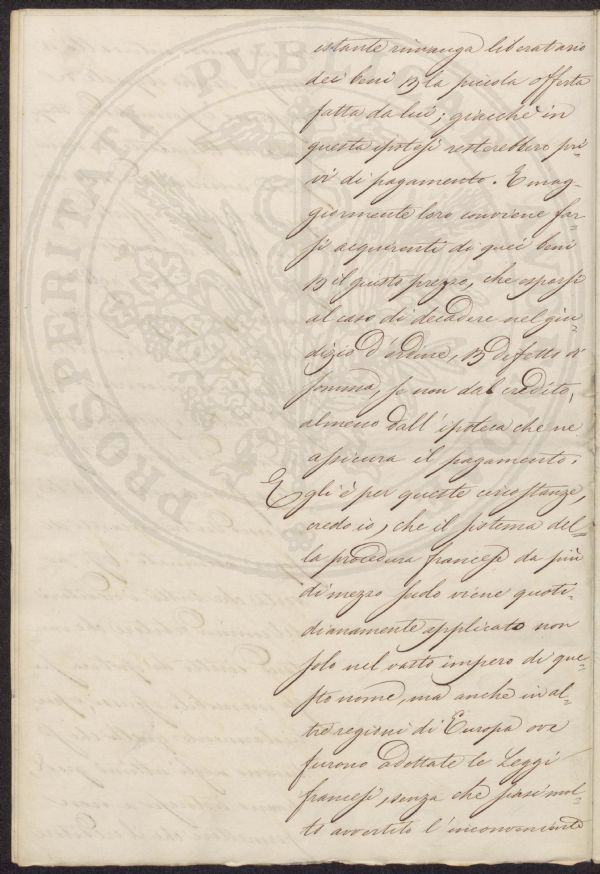 PROSPERITATI PVBLICAE
istante rimanga liberatario
dei beni p la piccola offerta
fatta da lui; giacchè in
questa ipotesi resterebbero pri-
vi di pagamento. E mag-
giormente loro conviene far-
si acquirenti di quei beni
p il giusto prezzo, che esporsi
al caso di decadere nel giu-
dizio d'ordine, p difetto di
somma, se non dal credito,
almeno dall'ipoteca che ne
assicura il pagamento.
Egli è per queste circostanze,
credo io, che il sistema del-
la procedura francese da più
di mezzo secolo viene quoti-
dianamente applicato non
solo nel vasto impero di que-
sto nome, ma anche in al-
tre regioni di Europa ove
furono adottate le Leggi
francesi, senza che siasi mol-
to avvertito l'inconveniente